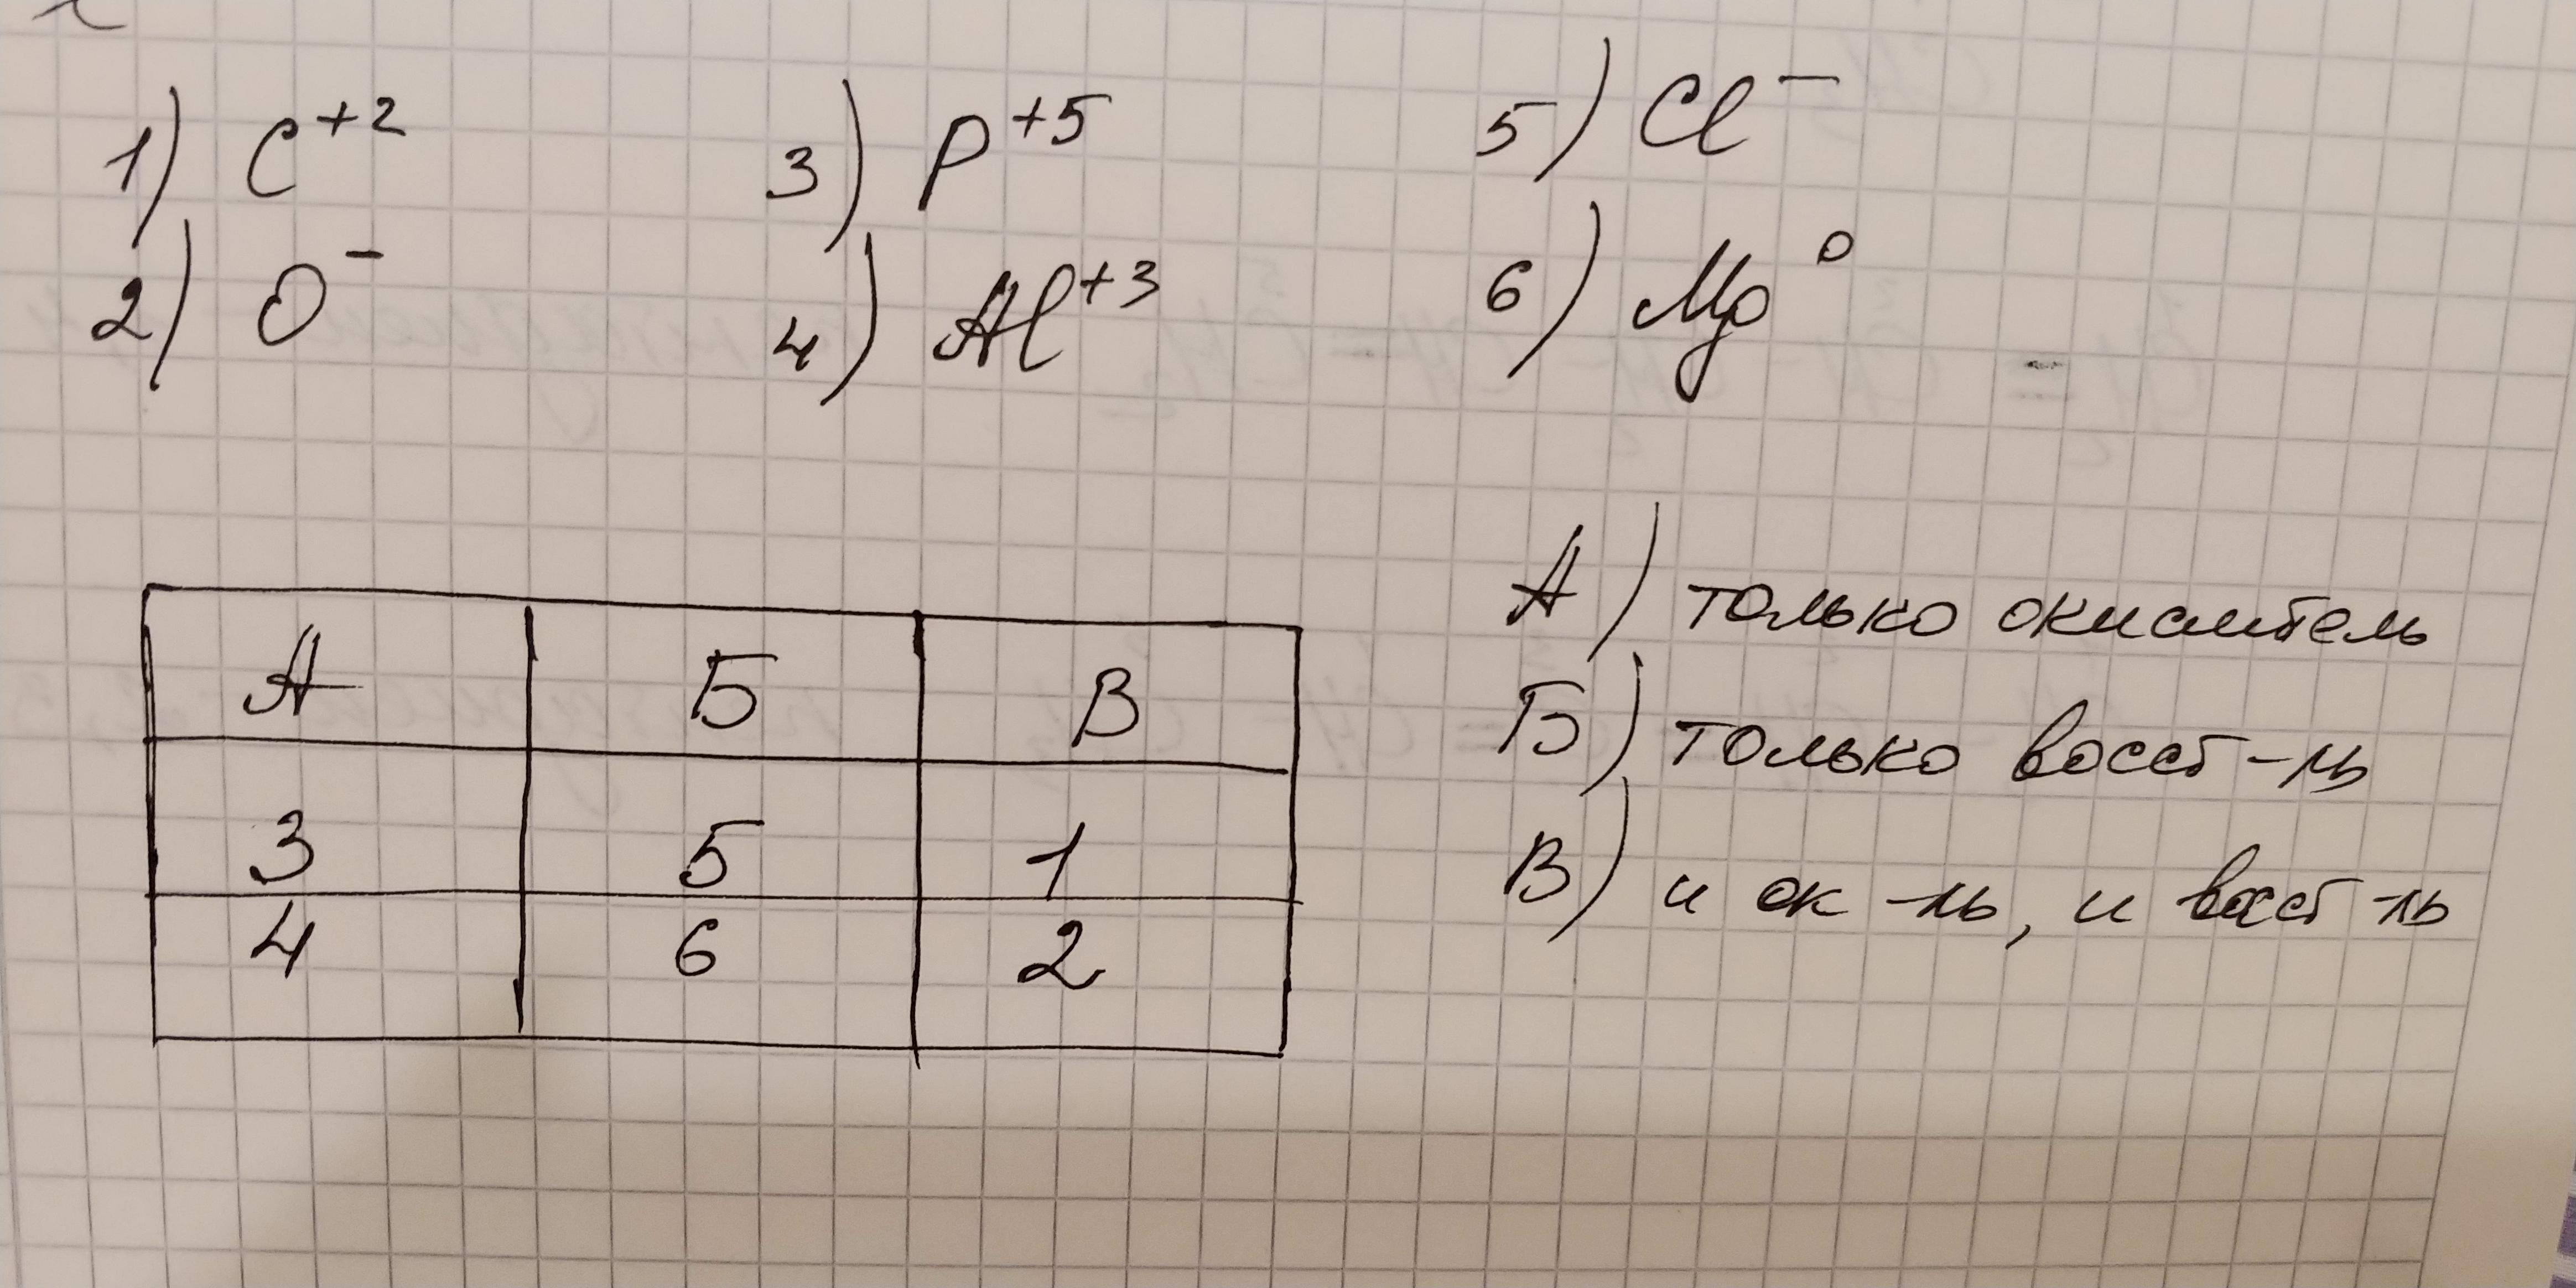 1) C⁺² 3) P⁺⁵ 5) Cl⁻
2) O⁻ 4) Al⁺³ 6) Mg⁰
А) только окислитель
Б) только восст-ль
В) и ок-ль, и восст-ль
А Б В
3 5 1
4 6 2